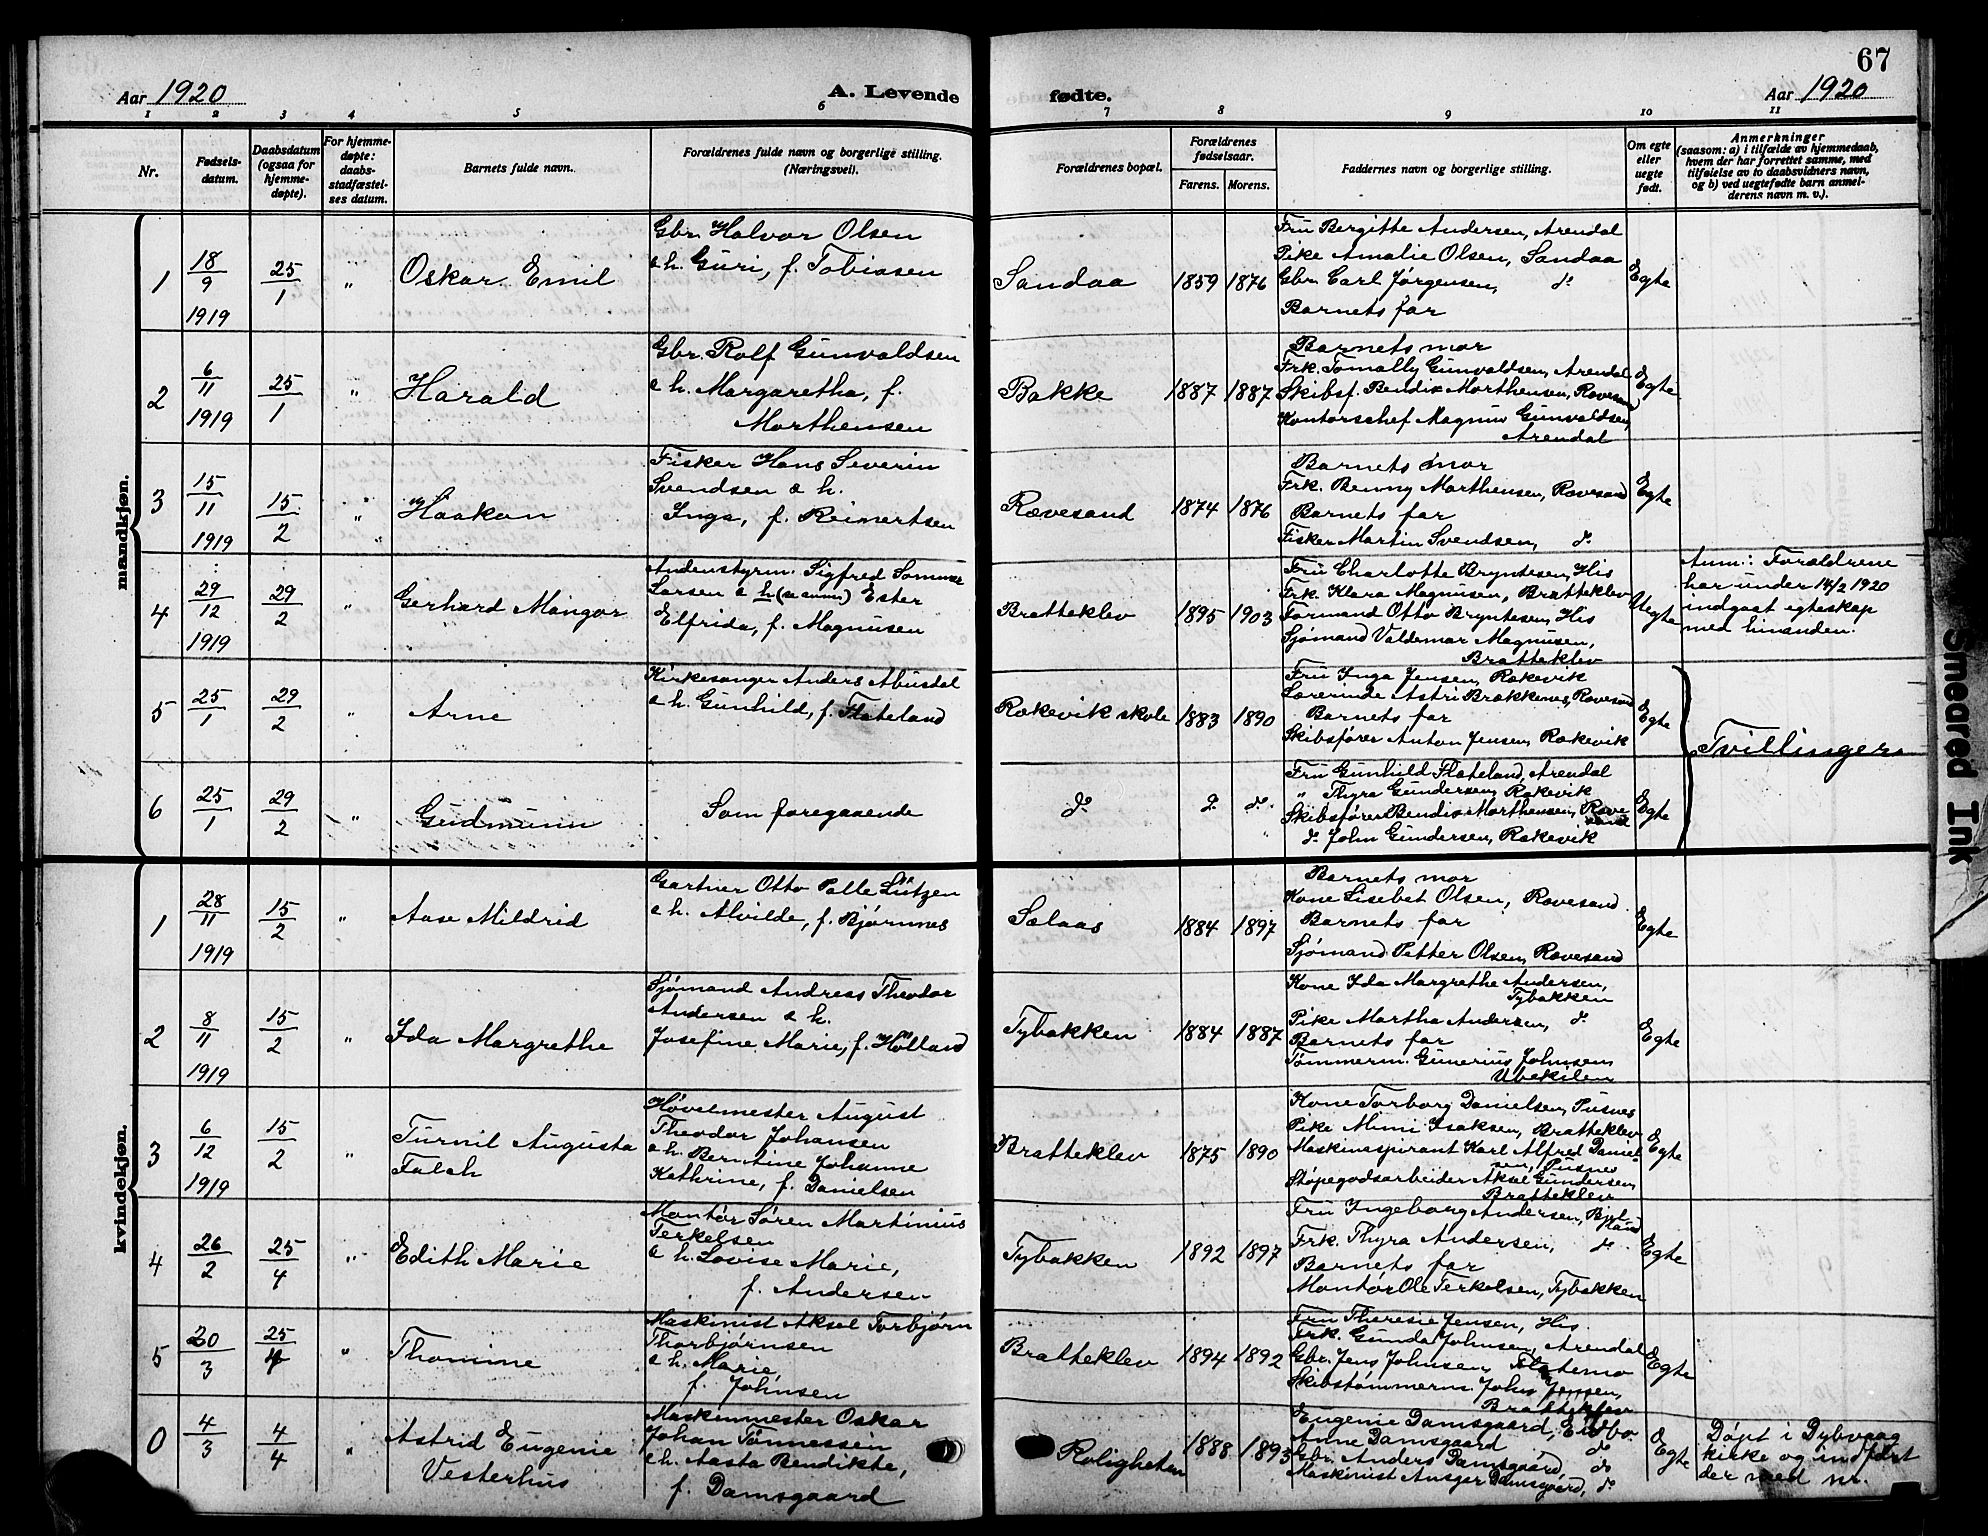 67
Aar 1920
A. Levende fødte.
Aar 1920
1 2 3 4 5 6 7 8 9 10 11
Nr.
Fødsels-
datum.
Daabsdatum
(ogsaa for
hjemme-
døpte).
For hjemme-
døpte:
daabs-
stadfæstel-
ses datum.
Barnets fulde navn.
Forældrenes fulde navn og borgerlige stilling.
(Næringsvei).
Forældrenes bopæl.
Forældrenes
fødselsaar.
Farens. Morens.
Faddernes navn og borgerlige stilling.
Om egte
eller
uegte
født.
Anmerkninger
(saasom: a) i tilfælde av hjemmedaab,
hvem der har forrettet samme, med
tilføielse av to daabsvidners navn,
og b) ved uegtefødte barn anmel-
derens navn m. v.).
mandkjøn.
1
18/9
1919
25/1
"
Oskar Emil
Gbr. Halvor Olsen
& h. Guri, f. Tobiasen
Sandaa
1859 1876
Fru Bergitte Andersen, Arendal
Pike Amalie Olsen, Sandaa
Gbr. Carl Jørgensen, do
Barnets far
Egte
2
6/11
1919
25/1
"
Harald
Gbr. Rolf Gunvaldsen
& h. Margaretha, f.
Morthensen
Bakke
1887 1887
Barnets mor
Frk. Tomally Gunvaldsen, Arendal
Skibsf. Bendix Morthensen, Rævesand
Kontorschef Magnus Gunvaldsen,
Arendal
Egte
3
15/11
1919
15/2
"
Haakon
Fisker Hans Severin
Svendsen & h.
Inga, f. Reimertsen
Rævesand
1874 1876
Barnets mor
Frk. Benny Morthensen, Rævesand
Barnets far
Fisker Martin Svendsen, do
Egte
4
29/12
1919
29/2
"
Gerhard Mangor
Andenstyrm. Sigfred Sommer
Larsen & h (se anm) Ester
Elfrida, f. Magnusen
Bratteklev
1895 1903
Fru Charlotte Bryntesen, His
Frk. Klara Magnusen, Bratteklev
Formand Otto Bryntesen, His
Sjømand Valdemar Magnusen,
Bratteklev
Uegte
Anm.: Forældrene
har under 14/2 1920
indgaat egteskap
med hinanden.
5
25/1
29/2
"
Arne
Kirkesanger Anders Abusdal
& h. Gunhild, f. Flateland
Rækevik skole
1883 1890
Fru Inga Jensen, Rækevik
Lærerinde Astri Brækkenes, Rævesand
Barnets far
Skibsfører Anton Jensen, Rækevik
Egte
Tvillinger
6
25/1
29/2
"
Gudmunn
Som foregaaende
do do do
Fru Gunhild Flateland, Arendal
" Thyra Gundersen, Rækevik
Skibsfører Bendix Morthensen, Rævesand
do John Gundersen, Rækevik
Egte
kvindekjøn.
1
28/11
1919
15/2
"
Aase Mildrid
Gartner Otto Palle Lützen
& h. Alvilde, f. Bjørnnes
Sælaas
1884 1897
Barnets mor
Kone Lisebet Olsen, Rævesand
Barnets far
Sjømand Petter Olsen, Rævesand
Egte
2
8/11
1919
15/2
"
Ida Margrethe
Sjømand Andreas Theodor
Andersen & h.
Josefine Marie, f. Hölland
Tybakken
1884 1887
Kone Ida Margrethe Andersen,
Tybakken
Pike Martha Andersen, do
Barnets far
Tømmerm. Gunerius Johnsen,
Ubekilen
Egte
3
6/12
1919
15/2
"
Turnil Augusta
Falch
Høvelmester August
Theodor Johansen
& h. Berntine Johanne
Kathrine, f. Danielsen
Bratteklev
1875 1890
Kone Torborg Danielsen, Pusnes
Pike Mimi Isaksen, Bratteklev
Maskinaspirant Karl Alfred Daniel-
sen, Pusnes
Støpegodsarbeider Aksel Gundersen,
Bratteklev
Egte
4
26/2
25/4
"
Edith Marie
Montør Søren Martinius
Terkelsen
& h. Lovise Marie,
f. Andersen
Tybakken
1892 1897
Fru Ingeborg Andersen,
Frk. Thyra Andersen, do
Barnets far
Montør Ole Terkelsen, Tybakken
Egte
5
20/3
25/4
"
Thomine
Maskinist Aksel Torbjørn
Thorbjørnsen
& h. Marie,
f. Johnsen
Bratteklev
1894 1892
Fru Theresie Jensen, His
Frk. Gunda Johnsen, Arendal
Gbr. Jens Johnsen, Flatemo
Skibstømmerm. John Jensen,
Bratteklev
Egte
0
4/3
4/4
"
Astrid Eugenie
Vesterhus
Maskinmester Oskar
Johan Tønnessein
& h. Aasta Bendikte,
f. Damsgaard
Roligheten
1888 1893
Eugenie Damsgaard, Eidbo
Anne Damsgaard do
Gbr. Anders Damsgaard, do
Maskinist Ansgar Damsgaard, do
Egte
Døpt i Dybvaag
kirke og indført
der med nr.
Smeared Ink